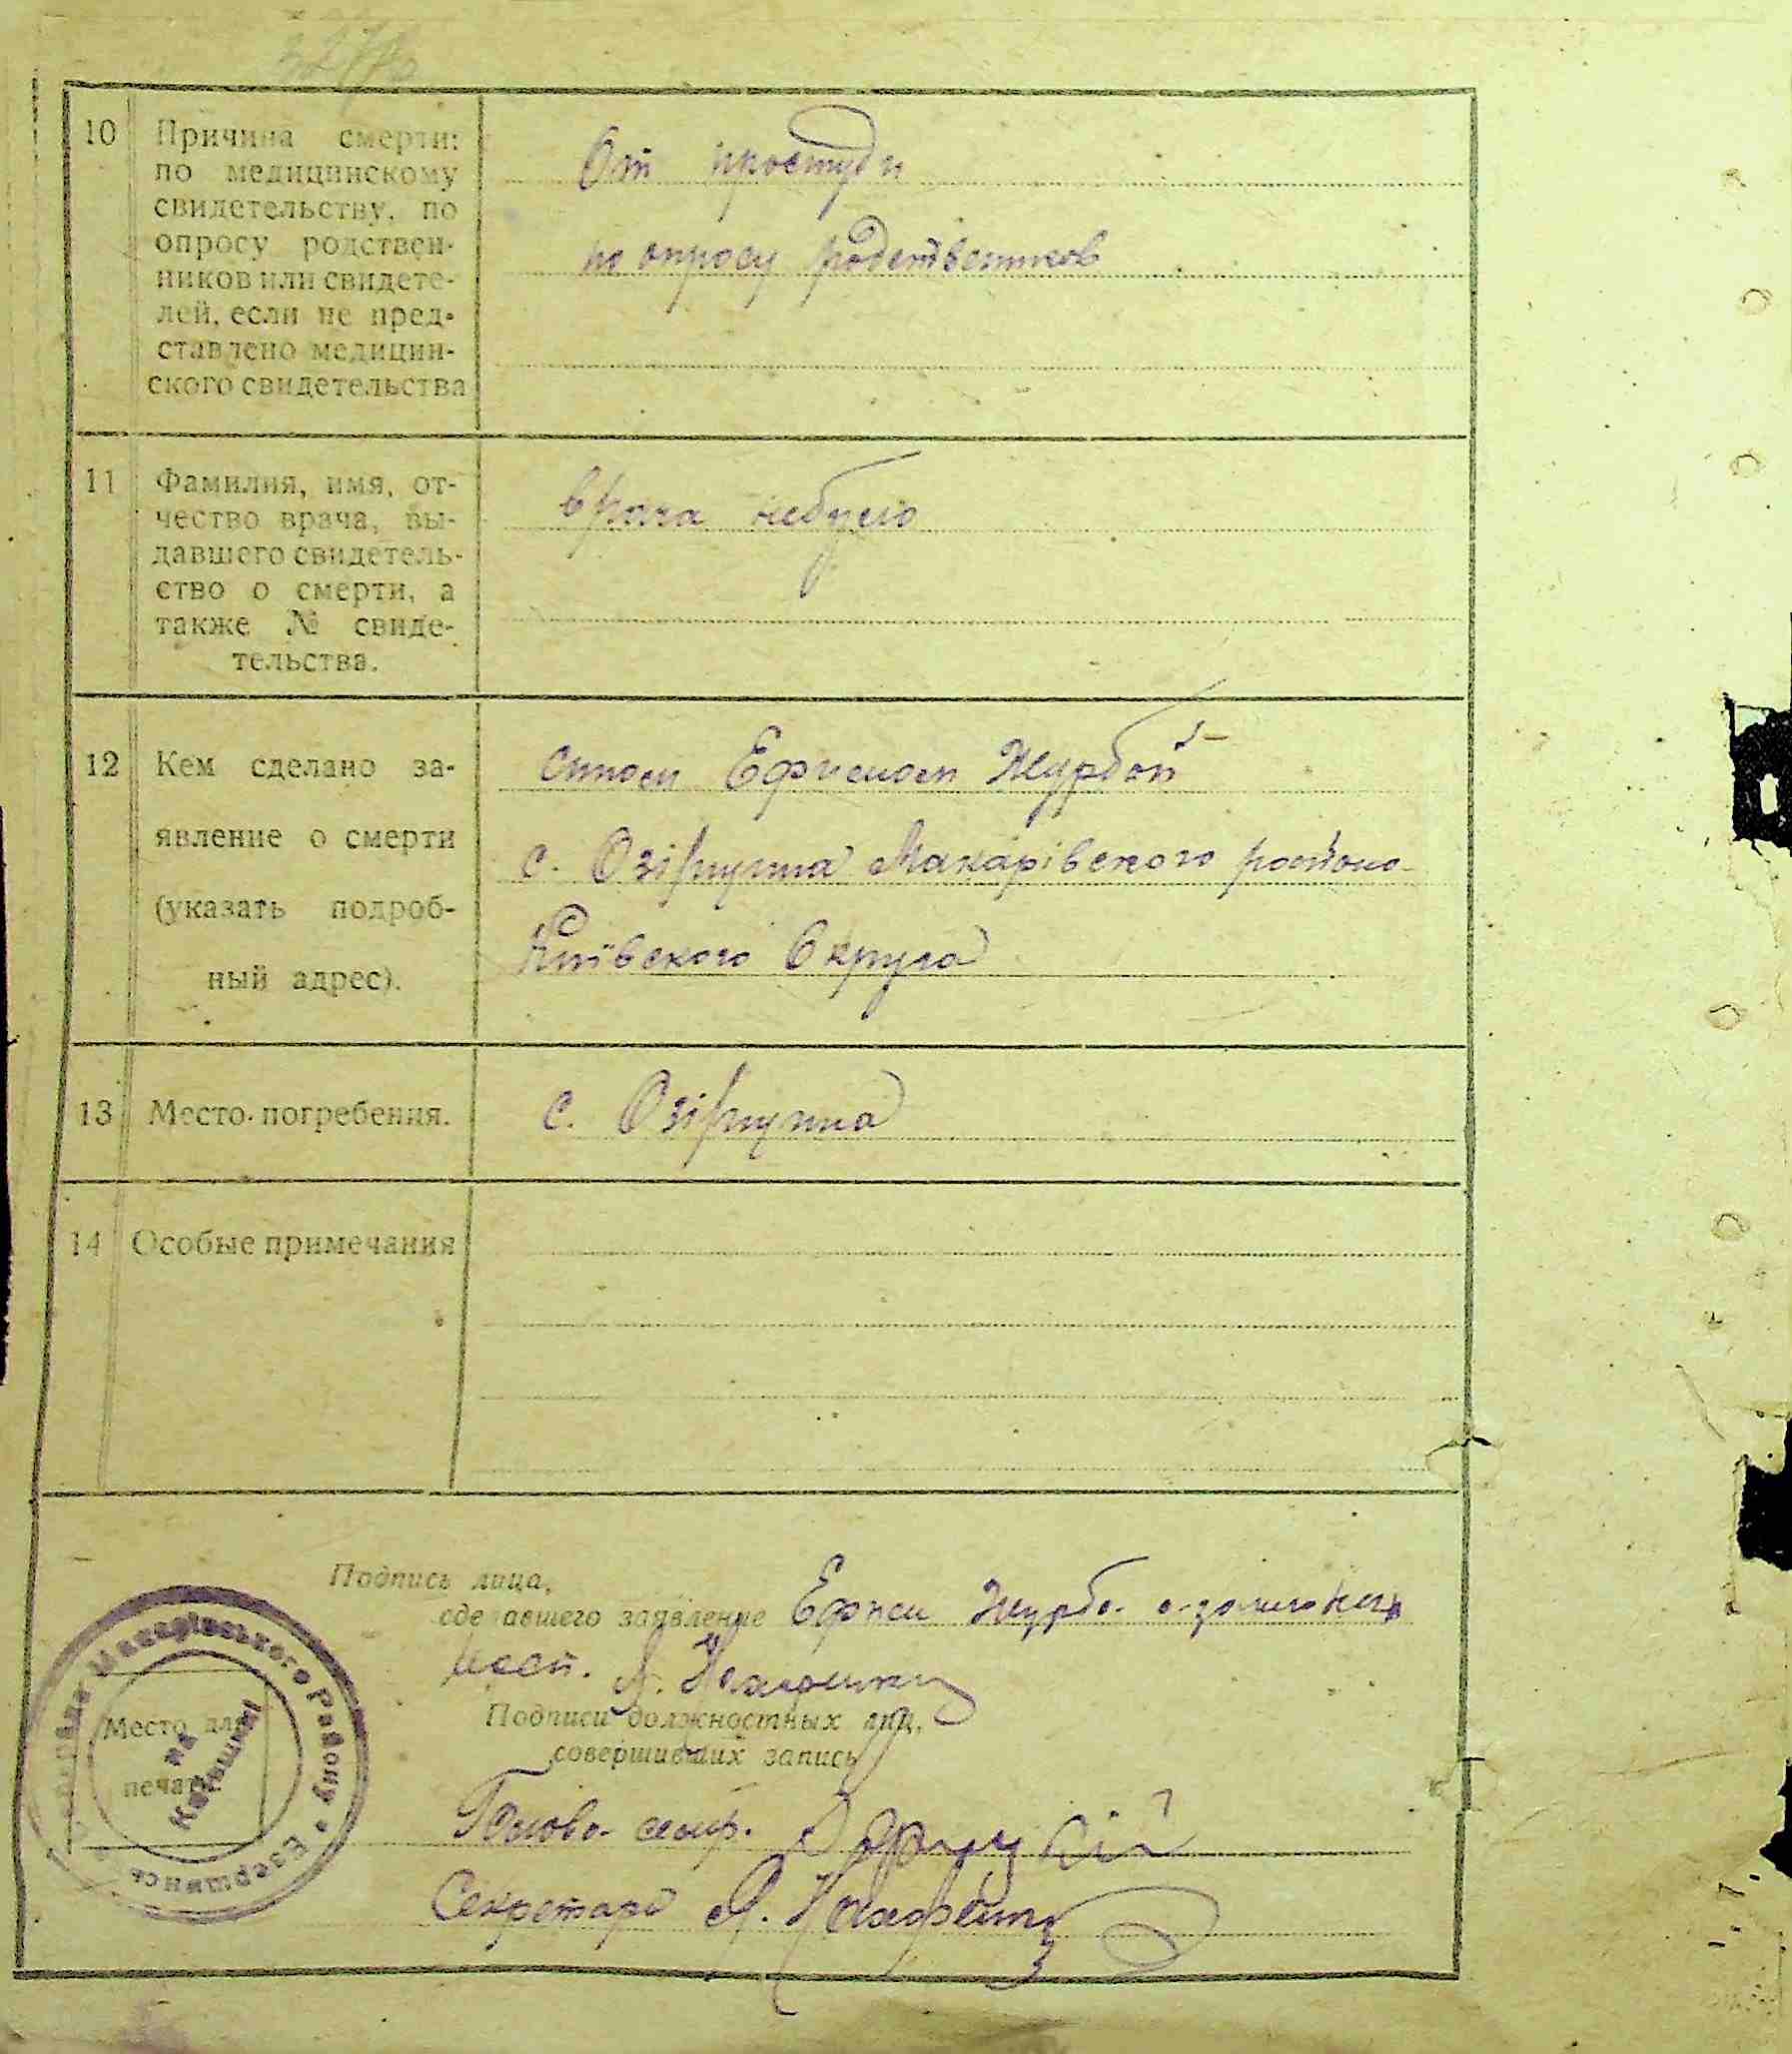 10 Причина смерти:
по медицинскому
свидетельству, по
опросу родствен-
ников или свидете-
лей, если не пред-
ставлено медицин-
ского свидетельства
От простуди
по опросу родствеників
11 Фамилия, имя, от-
чество врача, вы-
давшего свидетель-
ство о смерти, а
также № свиде-
тельства.
врача небуло
12 Кем сделано за-
явление о смерти
(указать подроб-
ный адрес).
сином Ефимом Журбой
с. Озірщина Макарівского района
Київского Округа
13 Место погребения.
с. Озірщина
14 Особые примечания
Подпись лица,
сделавшего заявление Ефим Журба
Подписи должностных лиц,
совершивших запись
Голова
Секретарь
Место для
печати
Макарівського Району
на
Київщині